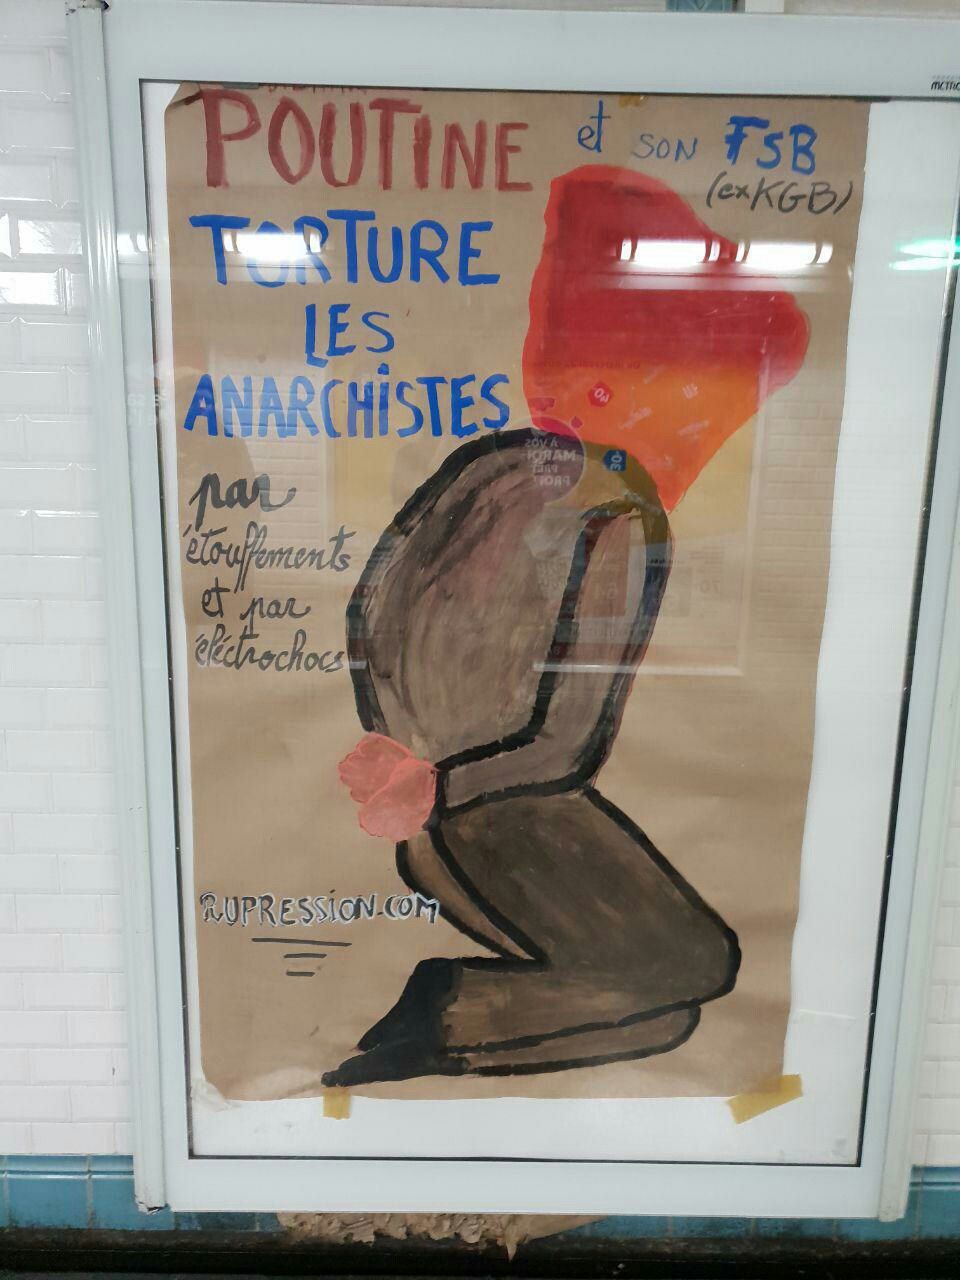 POUTINE et SON FSB
(exKGB)
TORTURE
LES
ANARCHISTES
par
étouffements
et par
éléctrochocs
RUPRESSION.COM